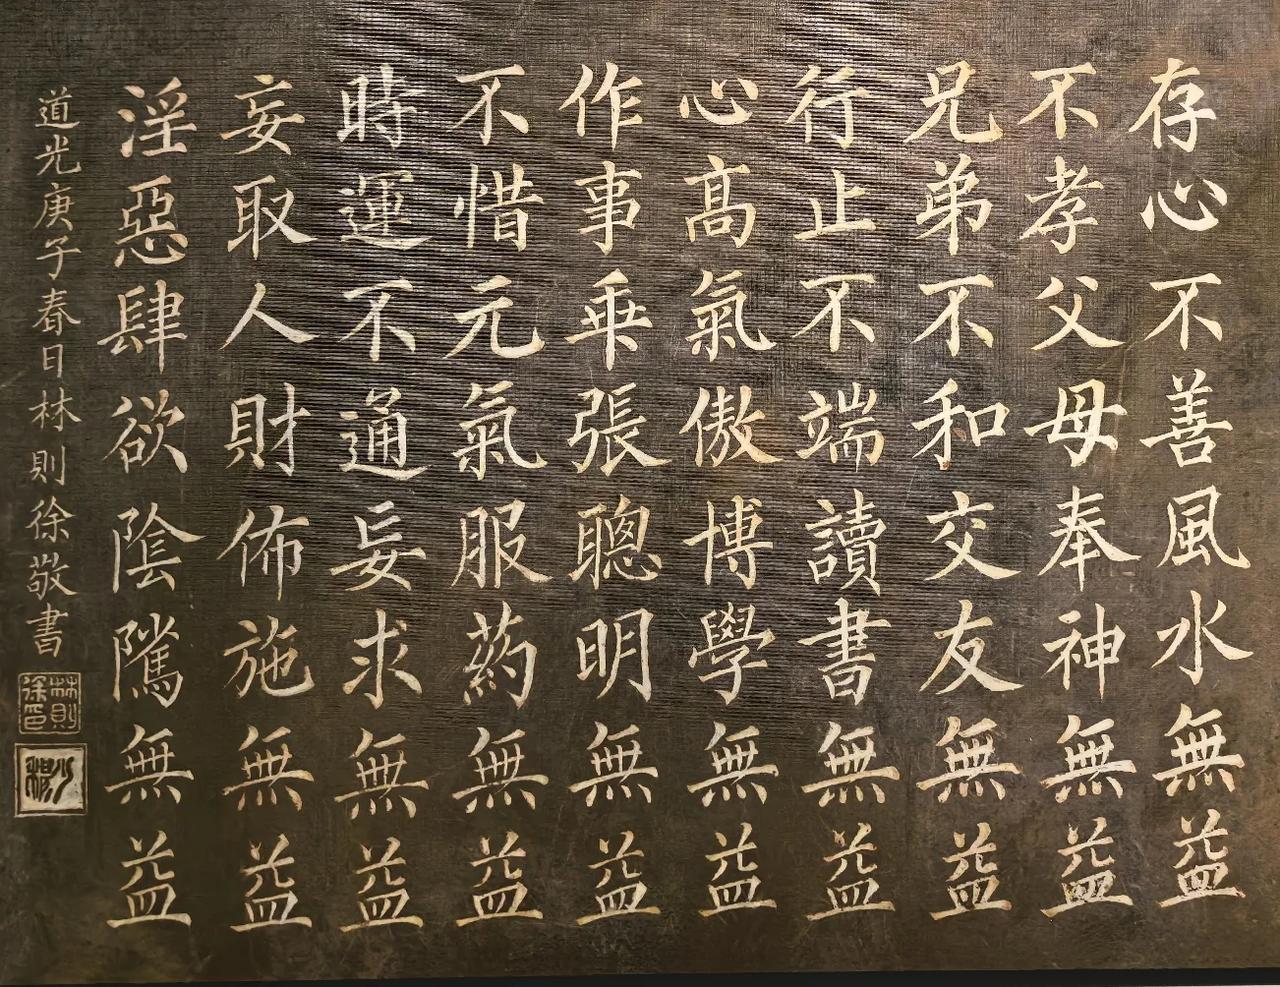 存心不善風水無益
不孝父母奉神無益
兄弟不和交友無益
行止不端讀書無益
心高氣傲博學無益
作事乖張聰明無益
不惜元氣服药無益
時運不通妄求無益
妄取人財佈施無益
淫惡肆欲陰騭無益
道光庚子春日林則徐敬書
林則徐印